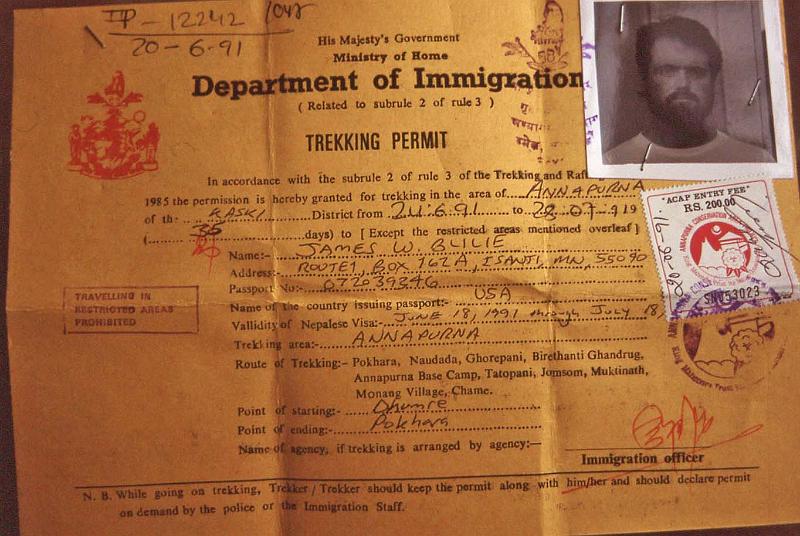 TP - 12242 /048
20-6-91
His Majesty's Government
Ministry of Home
Department of Immigration
( Related to subrule 2 of rule 3 )
TREKKING PERMIT
In accordance with the subrule 2 of rule 3 of the Trekking and Raft
1985 the permission is hereby granted for trekking in the area of ANNAPURNA
of the KASKI District from 24.6.91 to 28.07.919
( 35 days) to [ Except the restricted areas mentioned overleaf ]
Name:- JAMES W. BLILIE
Address:- ROUTE 1, BOX 162A, ISANTI, MN, 55040
Passport No:- 072039346
Name of the country issuing passport:- USA
Vallidity of Nepalese Visa:- JUNE 18, 1991 through July 18,
Trekking area:- ANNAPURNA
Route of Trekking:- Pokhara, Naudada, Ghorepani, Birethanti Ghandrug,
Annapurna Base Camp, Tatopani, Jomsom, Muktinath,
Monang Village, Chame.
Point of starting:- Dhumre
Point of ending:- Pokhara
Name of agency, if trekking is arranged by agency:-
Immigration officer
N. B. While going on trekking, Trekker / Trekker should keep the permit along with him/her and should declare permit
on demand by the police or the Immigration Staff.
TRAVELLING IN
RESTRICTED AREAS
PROHIBITED
"ACAP ENTRY FEE"
RS. 200.00
ANNAPURNA CONSERVATION
20-06-91